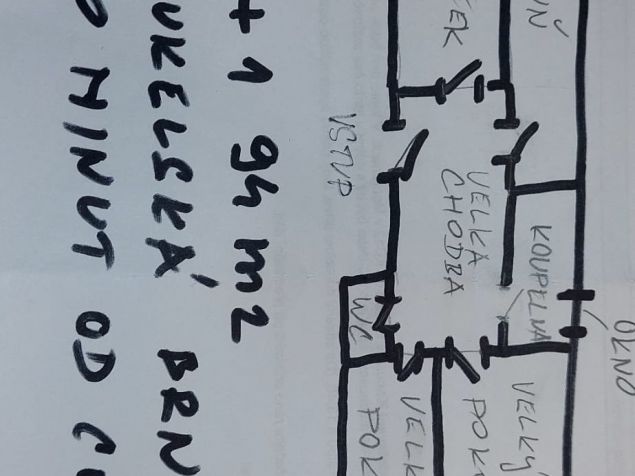 OKNO
UŇ
KOUPELNA
VELKÝ
POK
VELKÁ
CHODBA
EK
VELK
POK
WC
VSTUP
+1 94 m2
UKELSKÁ BRN
O MINUT OD C